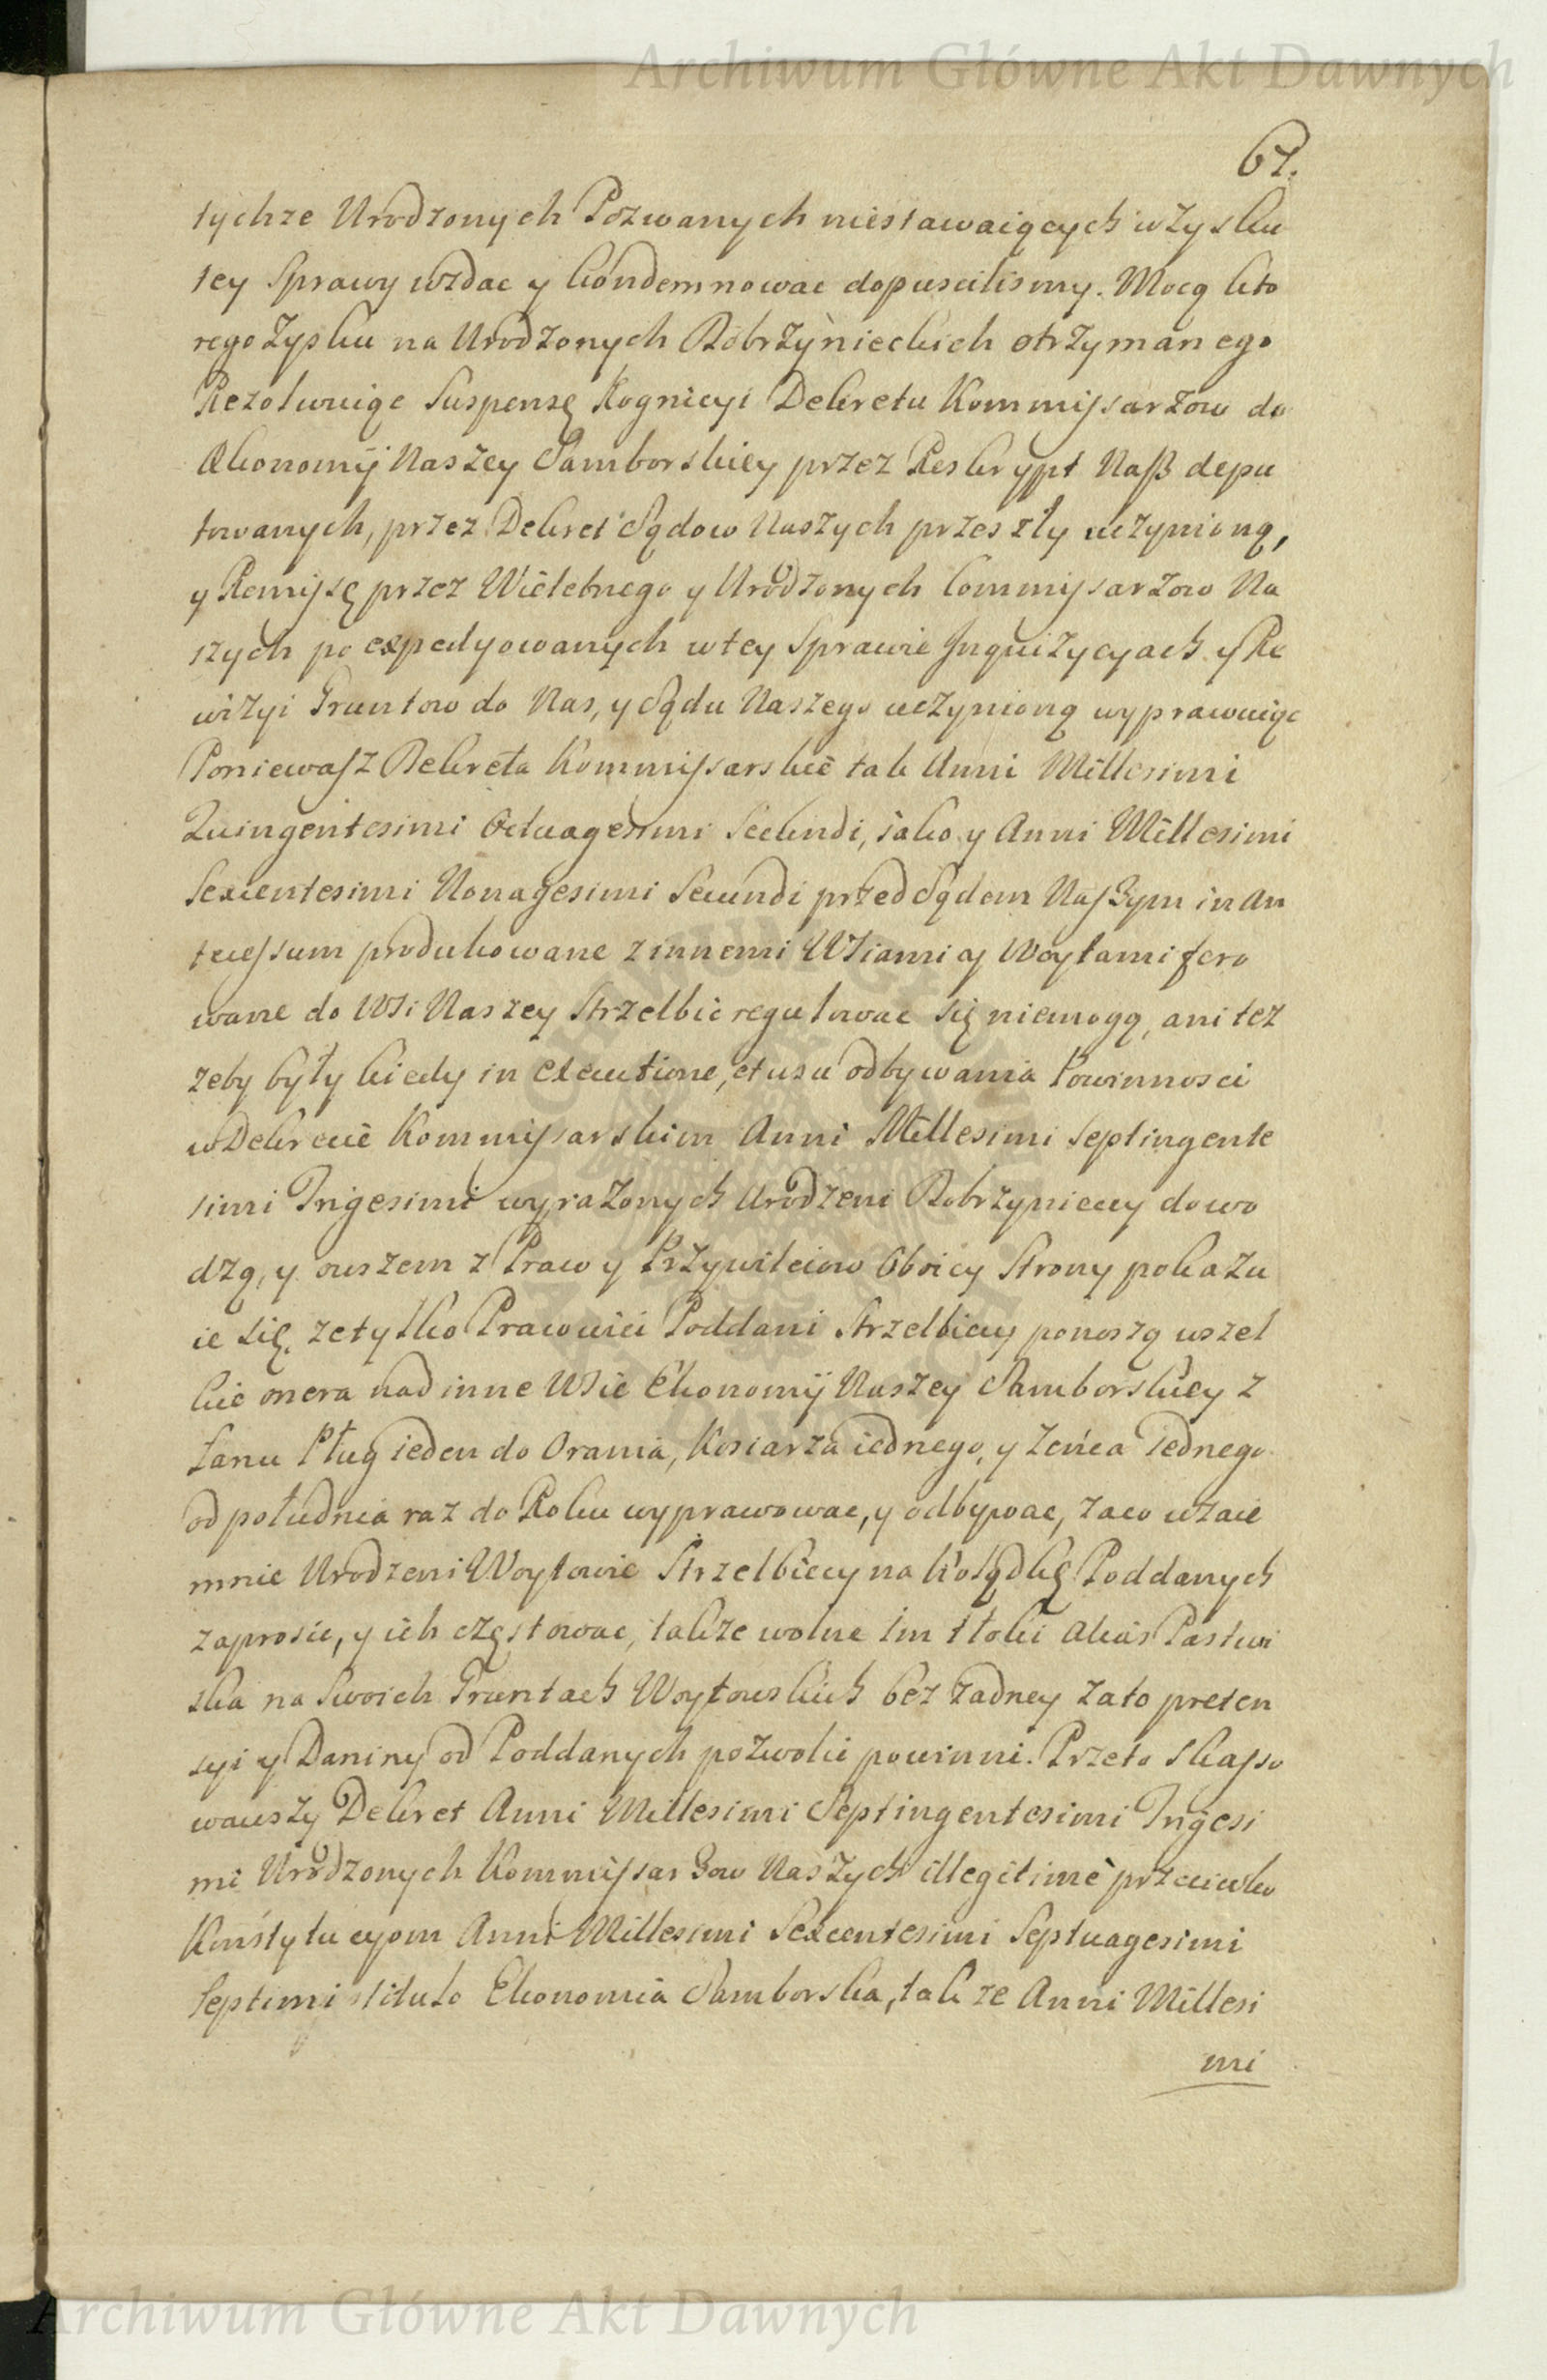 Archiwum Główne Akt Dawnych
67.
tychze Urodzonych Pozwanych niestawaiących w Zysku
tey Sprawy wzdac y kondemnowac dopuscilismy. Mocą kto
rego Zysku na Urodzonych Dobrzynieckich otrzymanego
Rezolwuiąc Suspensę Kognicyi Dekretu Kommissarzow do
Ekonomij Naszey Samborskiey przez Reskrypt Nasz depu
towanych, przez Dekret Sądow Naszych przeszły uczynioną,
y Remissę przez Wielebnego y Urodzonych Commissarzow Na
szych po expedyowanych w tey Sprawie Inquizycyach y Re
wizyi Gruntow do Nas, y Sądu Naszego uczynioną wyprawuiąc
Poniewasz Dekreta Kommissarskie tak Anni Millesimi
Quingentesimi Octuagesimi Secundi, iako y Anni Millesimi
Sexcentesimi Nonagesimi Secundi przed Sądem Naszym in an
tecessum produkowane z innemi Wsiami y Woytami fero
wane do Wsi Naszey Strzelbic regulowac się niemogą, ani tez
zeby były kiedy in executione, et usu odbywania Powinnosci
w Dekrecie Kommissarskim Anni Millesimi Septingente
simi Trigesimi wyrazonych Urodzeni Dobrzynieccy dowo
dzą, y owszem z Praw y Przywileiow Oboiey Strony pokazu
ie się, ze tylko Prawowici Poddani Strzelbiccy ponoszą wszel
kie onera nad inne Wsie Ekonomij Naszey Samborskiey z
Łanu Pług ieden do Orania, Kosiarza iednego, y Zeńca iednego
od południa raz do Roku wyprawowac, y odbywac, zaco wzaie
mnie Urodzeni Woytowie Strzelbiccy na Kolądkę Poddanych
zaprosic, y ich częstowac, takze wolne im tłoki alias Pastwi
ska na Swoich Gruntach Woytowskich bez zadney zato preten
syi y Daniny od Poddanych pozwolic powinni. Przeto skasso
wawszy Dekret Anni Millesimi Septingentesimi Trigesi
mi Urodzonych Kommissarzow Naszych illegitimè przeciwko
Konstytucyom Anni Millesimi Sexcentesimi Septuagesimi
Septimi titulo Ekonomia Samborska, takze Anni Millesi
mi
Archiwum Główne Akt Dawnych